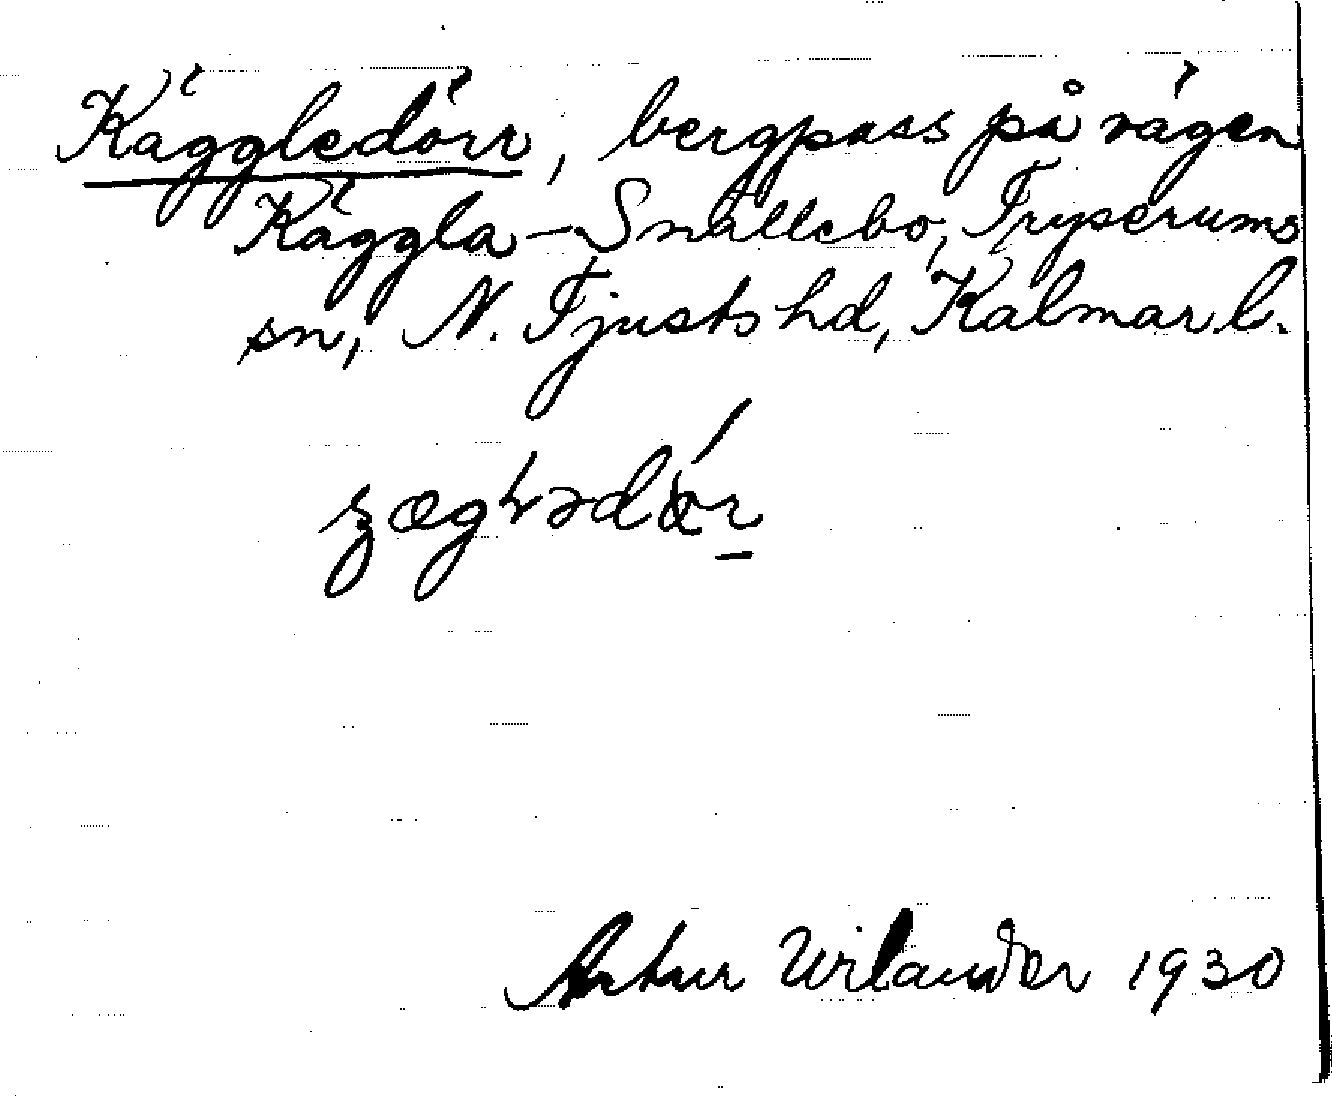 Käggledörr, bergpass på vägen
Käggla - Snällebo, Tryserums
sn, N. Tjusts hd, Kalmar l.
Artur Wilander 1930